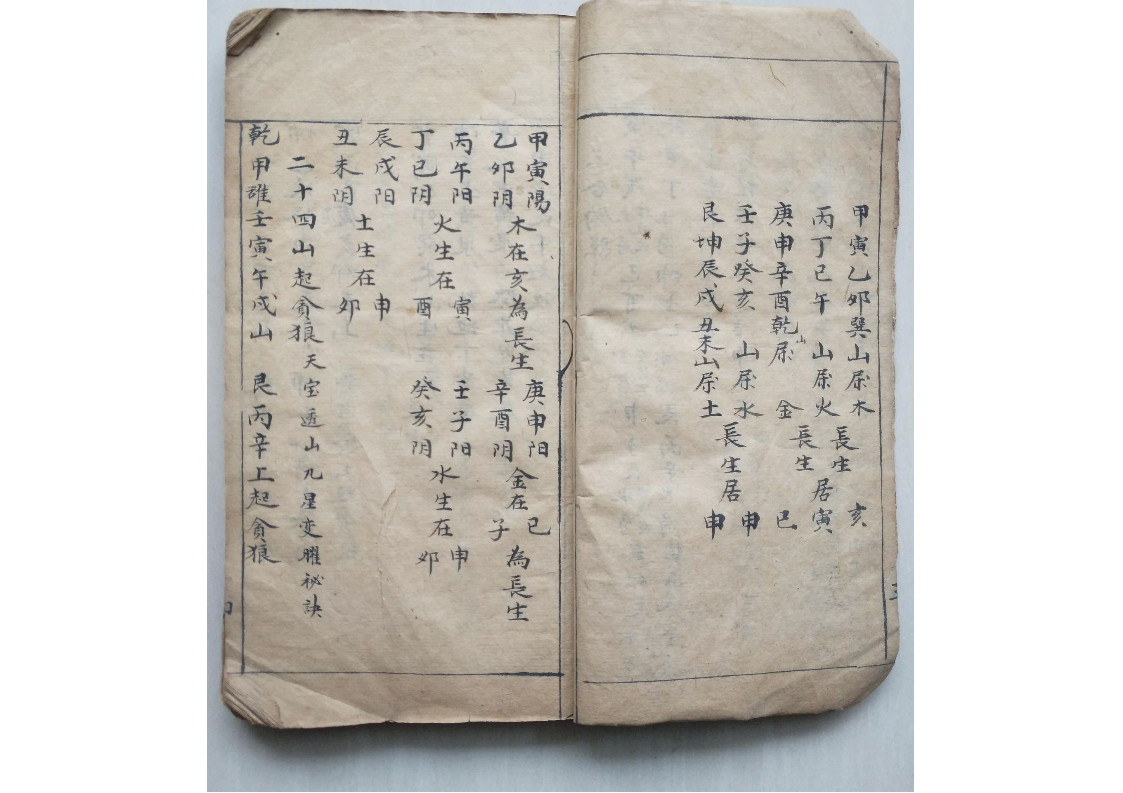 甲寅乙夘巽山属木 長生 亥
丙丁巳午 山属火 居寅
庚申辛酉乾山属 金 長生 巳
壬子癸亥 山属水 申
艮坤辰戌丑未山属土 長生居 申
甲寅陽 庚申阳 巳
木在亥為長生 金在 為長生
乙夘阴 辛酉阴 子
丙午阳 寅 壬子阳 申
火生在 水生在
丁巳阴 酉 癸亥阴 夘
辰戌阳 申
土生在
丑未阴 夘
二十四山起貪狼 天宝透山九星变曜祕訣
乾甲離壬寅午戌山 艮丙辛上起貪狼